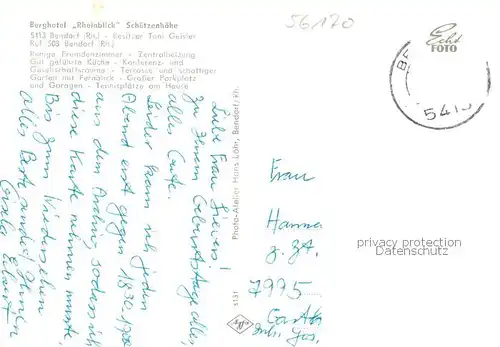 Berghotel „Rheinblick" Schützenhöhe
5413 Bendorf (Rh.) - Besitzer Toni Geisler
Ruf 508 Bendorf (Rh.)
Ruhige Fremdenzimmer - Zentralheizung
Gut geführte Küche - Konferenz- und
Gesellschaftsräume - Terrasse und schattiger
Garten mit Fernblick - Großer Parkplatz
und Garagen - Tennisplätze am Hause
56120
Echt
FOTO
5413
Liebe Frau
zu Ihrem Geburtstage alles,
alles Gute.
Leider kam ich jeden
Abend erst gegen 18³⁰-19⁰⁰
aus dem sodass ich
diese Karte nehmen musste.
Bis zum Wiedersehen
alles Beste sendet Ihnen
Photo-Atelier Hans Löhr, Bendorf/Rh.
5131
Frau
Hanna
z. Zt.
7995
privacy protection
Datenschutz